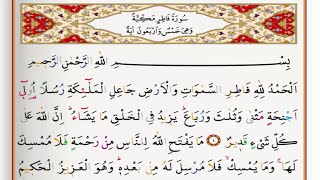 سُورَةُ فَاطِرٍ مَكِّيَّةٌ
وَهِيَ خَمْسٌ وَاَرْبَعُونَ اٰيَةً
بِسْمِ اللّٰهِ الرَّحْمٰنِ الرَّحِيمِ
اَلْحَمْدُ لِلّٰهِ فَاطِرِ السَّمٰوَاتِ وَالْاَرْضِ جَاعِلِ الْمَلٰٓئِكَةِ رُسُلًا اُو۬لٓي
اَجْنِحَةٍ مَثْنٰى وَثُلٰثَ وَرُبَاعَۜ يَزِيدُ فِي الْخَلْقِ مَا يَشَٓاءُۜ اِنَّ اللّٰهَ عَلٰى
كُلِّ شَيْءٍ قَدِيرٌ ١ مَا يَفْتَحِ اللّٰهُ لِلنَّاسِ مِنْ رَحْمَةٍ فَلَا مُمْسِكَ
لَهَاۚ وَمَا يُمْسِكْۙ فَلَا مُرْسِلَ لَهُ مِنْ بَعْدِه۪ۜ وَهُوَ الْعَزِيزُ الْحَكِيمُ